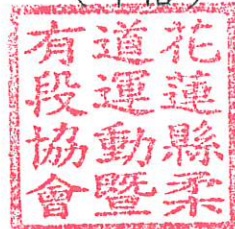 花蓮縣柔
道運動暨
有段協會